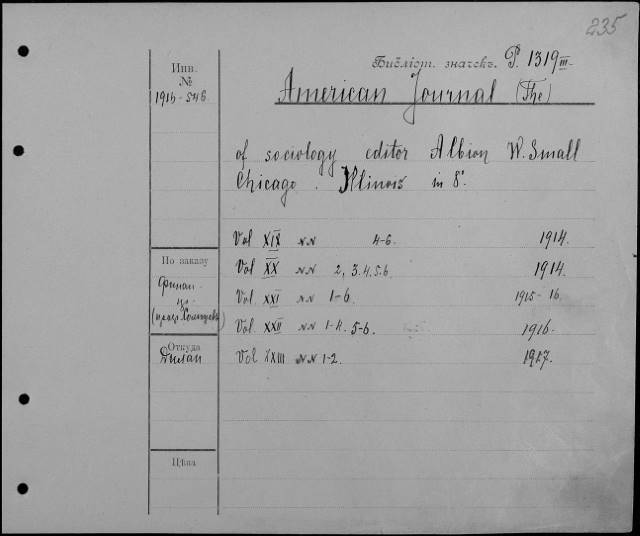 235
Библіот. значекъ. P. 1319 III
Инв.
№
1915-546
American Journal (The)
of sociology editor Albion W. Small
Chicago. Illinois in 8°.
Vol XIX NN 4-6. 1914.
По заказу
Vol XX NN 2, 3.4.5.6. 1914.
Vol. XXI NN 1-6. 1915-16.
Vol XXII NN 1-4. 5-6. 1916.
Откуда
Vol XXIII NN 1-2. 1917.
Цѣна